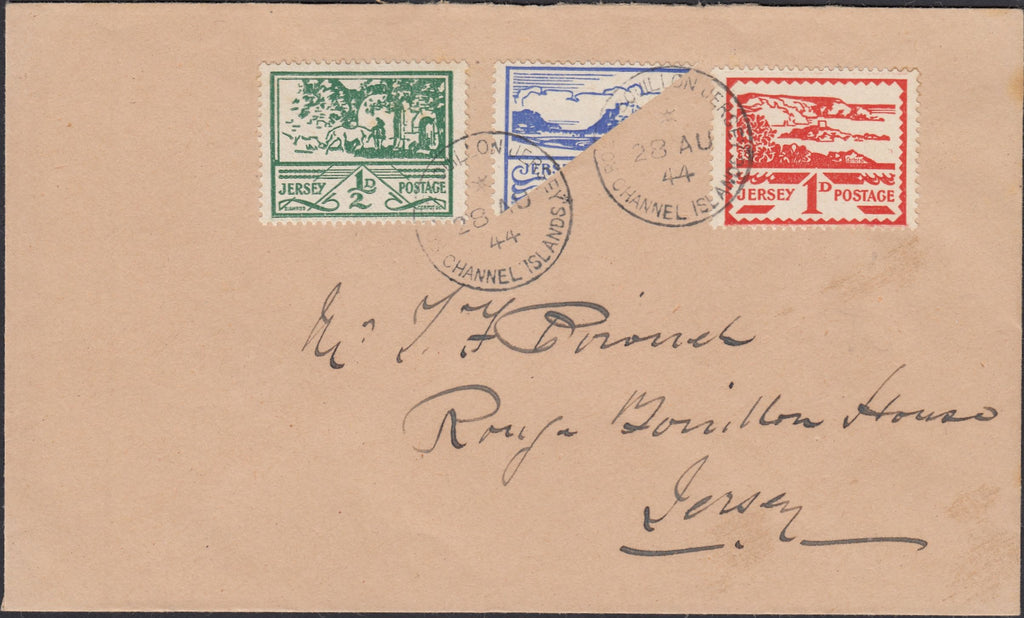 JERSEY ½D POSTAGE
JERS
JERSEY 1D POSTAGE
ILLON JERSEY
28 AU
44
CHANNEL ISLANDS
ILLON JERSEY
28 AU
44
CHANNEL ISLANDS
Mr. T. F.
Rouge Bouillon House
Jersey